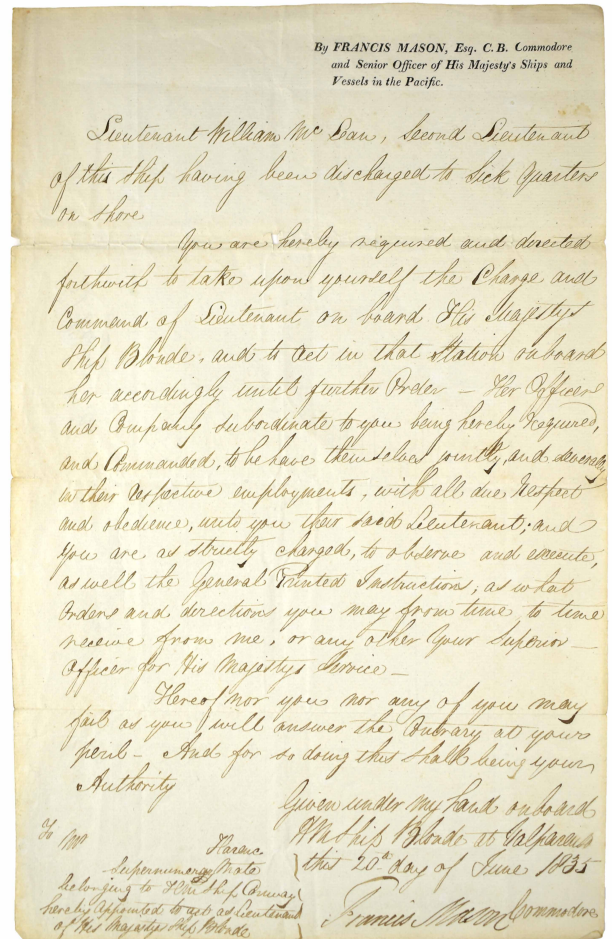 By FRANCIS MASON, Esq. C. B. Commodore
and Senior Officer of His Majesty's Ships and
Vessels in the Pacific.
Lieutenant William Mc Ean, Second Lieutenant
of this Ship having been discharged to Sick Quarters
on shore
You are hereby required and directed
forthwith to take upon yourself the Charge and
Command of Lieutenant on board His Majesty's
Ship Blonde, and to Act in that Station onboard
her accordingly until further Order – Her Officers
and Company subordinate to you being hereby Required,
and Commanded, to behave themselves jointly, and severally
in their respective employments, with all due Respect
and obedience, unto you their said Lieutenant; and
You are as strictly charged, to observe and execute,
as well the General Printed Instructions, as what
Orders and directions you may from time, to time
receive from me, or any other Your Superior –
Officer for His Majestys Service –
Hereof nor you nor any of you may
fail as you will answer the Contrary at your
peril – And for so doing this shall being your
Authority
Given under my hand onboard
HM Ship Blonde at Valparaiso
this 20th day of June 1835
Francis Mason Commodore
To Mr
Supernumery Mate
belonging to HM Ship Conway
hereby Appointed to act as Lieutenant
of His Majestys Ship Blonde